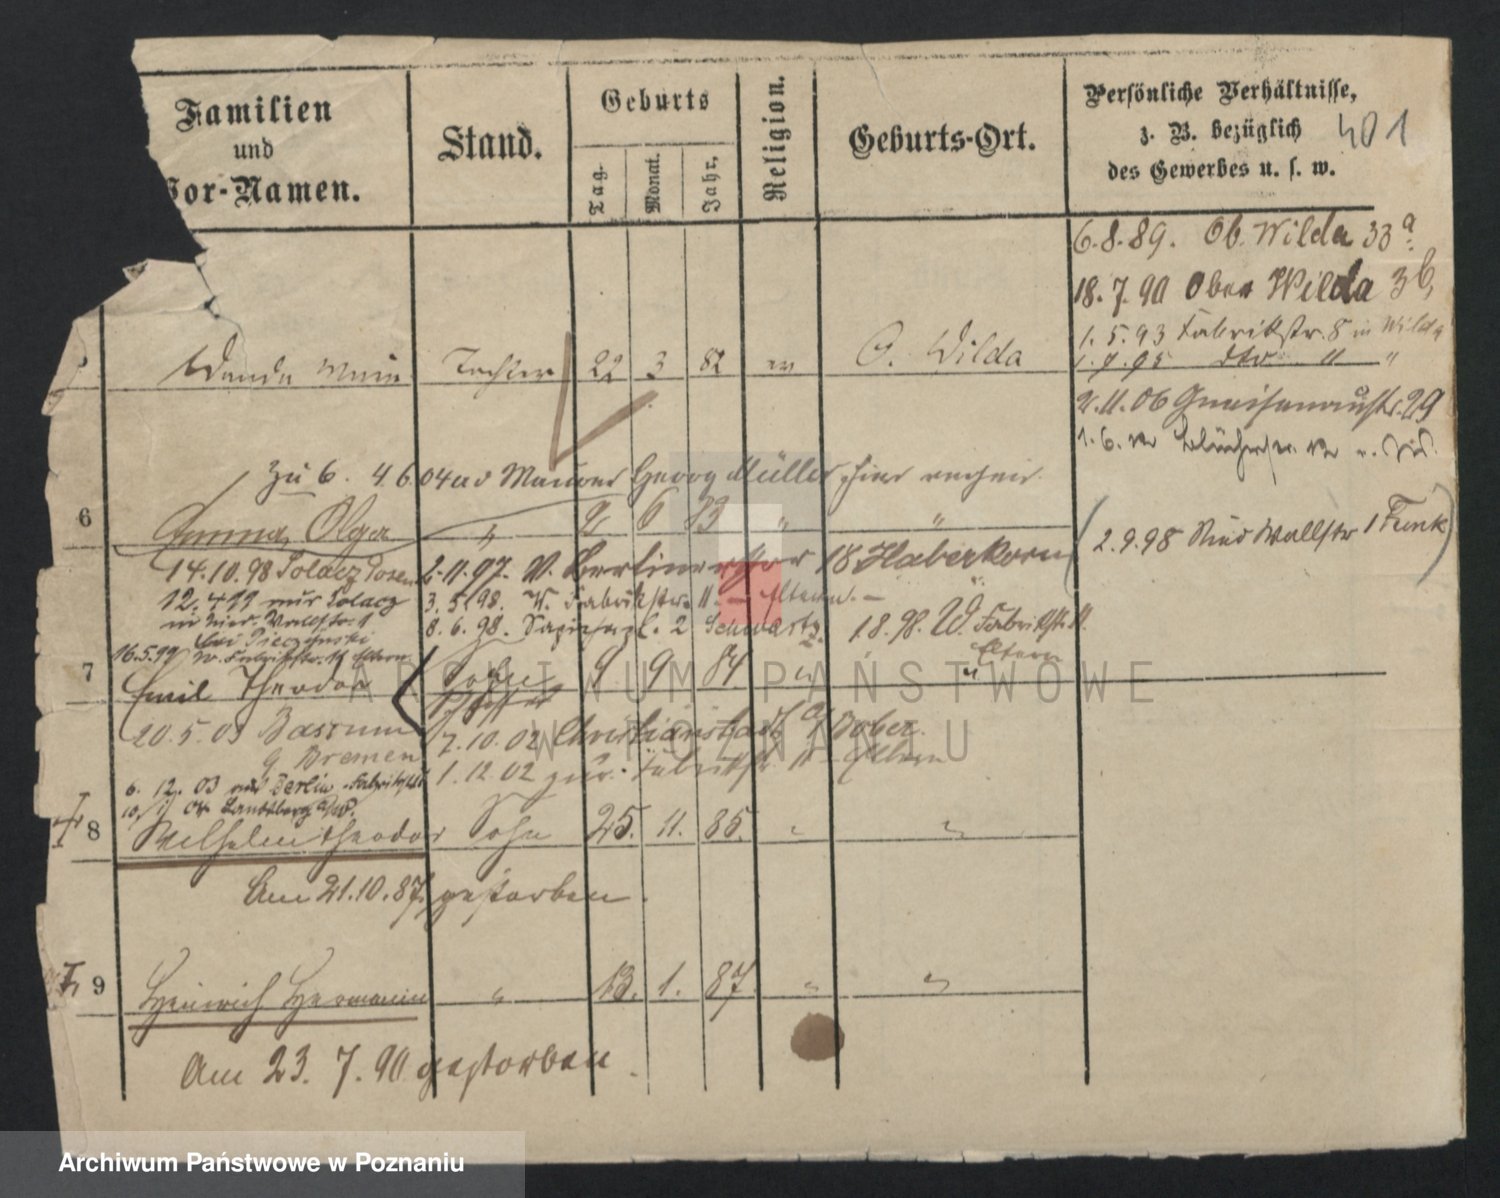 Familien
und
Vor-Namen.
Stand.
Geburts
Tag.
Monat.
Jahr.
Religion.
Geburts-Ort.
Persönliche Verhältnisse,
z. B. bezüglich
des Gewerbes u. s. w.
401
6.8.89. Ob. Wilda 33a
18.7.90 Ober Wilda 3b,
1.5.93 Fabrikstr. 8 in Wilda
Wanda Marie Tochter 22 3 82 ev O. Wilda
1.7.95 dto " "
2.11.06 Gneisenaustr. 29
1.6.
zu 6. 4.6.04 Maurer Georg Müller hier
6 Emma Olga " 2 6 83 " "
2.9.98 Wallstr 1 Funk
14.10.98 Solacz Posen 2.11.97. W. Berlinerstor 18 Haberkorn
12.4.99 aus Solacz 3.5.98. W. Fabrikstr. 11 - Eltern. -
in hier. Wallstr. 1
bei
8.6.98. 2 Schwartz. 1.8.98. W. Fabrikstr. 11.
Eltern
16.5.99 W. Fabrikstr. 11 Eltern.
7 Emil Theodor Sohn 9 9 84 " "
20.5.03 Bassum 7.10.02 Christianstadt a/Bober.
b. Bremen 1.12.02 zur. Fabrikstr. 11 Eltern
6.12.03 aus Berlin - Fabrikstr.
Landsberg a/W.
8 Wilhelm Theodor Sohn 25. 11. 85. " "
Am 21.10.87. gestorben.
9 Heinrich Hermann " 13. 1. 87. " "
Am 23.7.90 gestorben.
ARCHIWUM PAŃSTWOWE
W POZNANIU
Archiwum Państwowe w Poznaniu